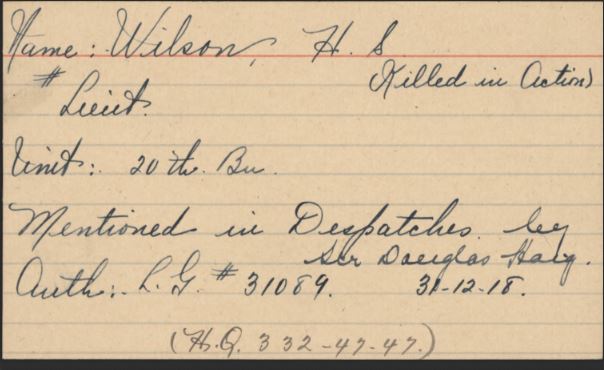 Name: Wilson, H. S
(Killed in Action)
# Lieut.
Unit: 20th. Bn.
Mentioned in Despatches by
Sir Douglas Haig.
Auth:. L. G. # 31089. 31-12-18.
(H.Q. 332-47-47.)